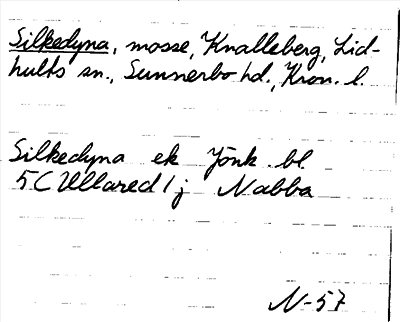 Silkedyna, mosse, Knalleberg, Lid-
hults sn., Sunnerbo hd., Kron. l.
Silkedyna ek Jönk. bl
5C Ullared 1j Nabba
N-57